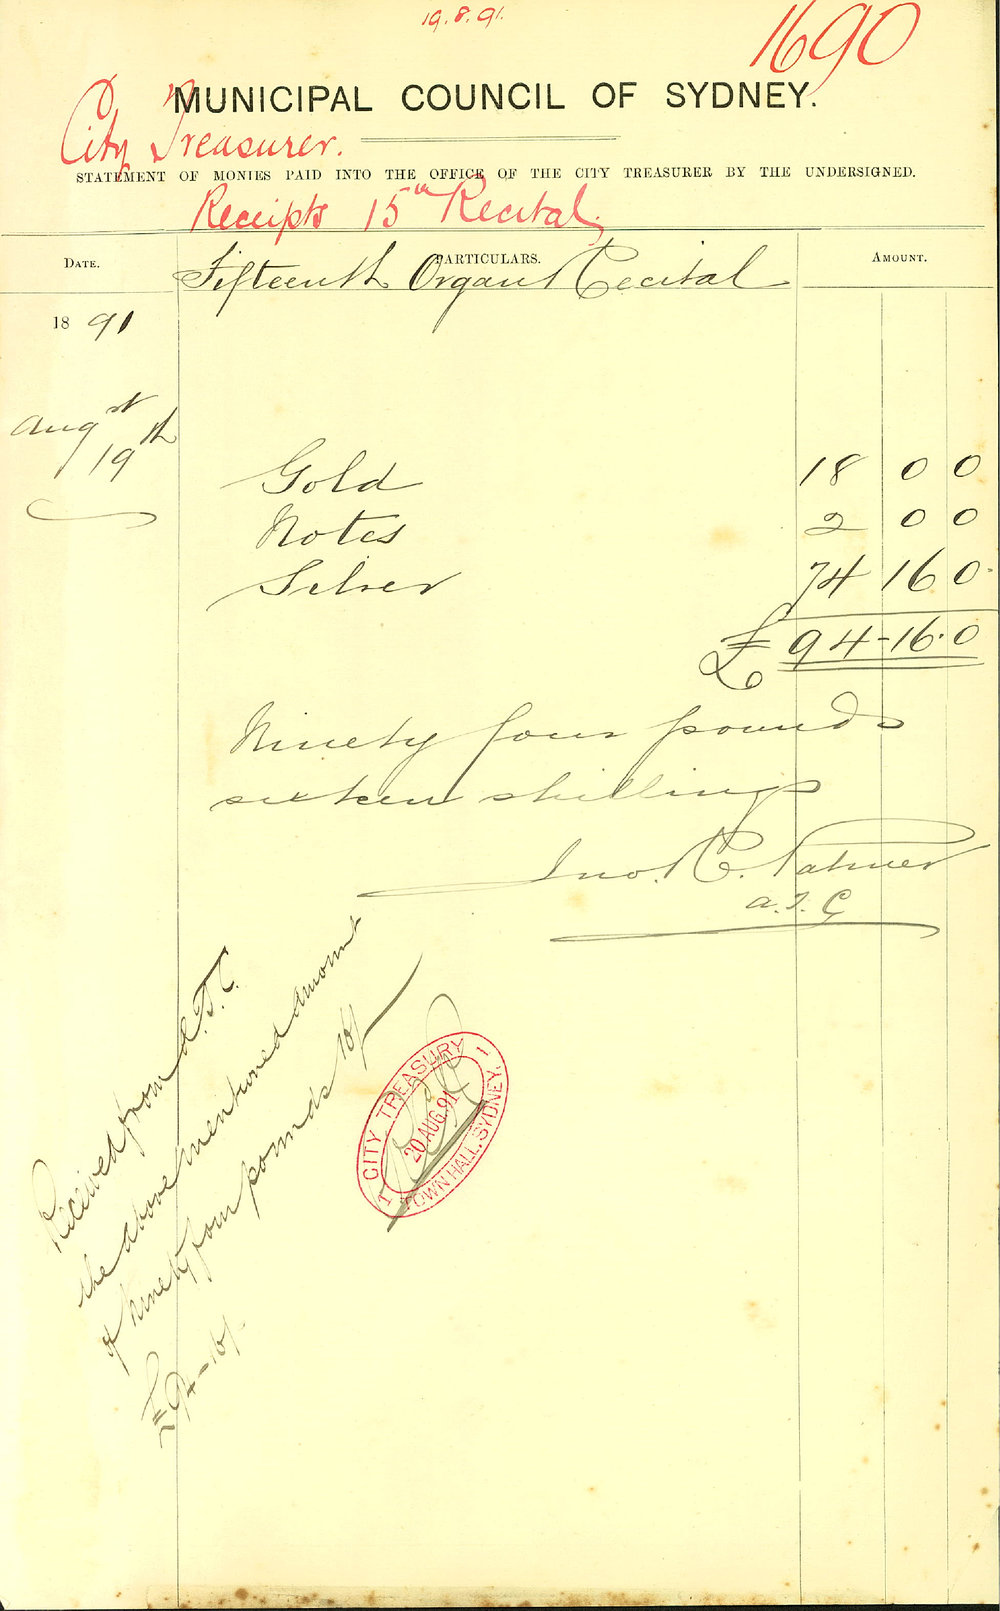 19.8.91.
1690
MUNICIPAL COUNCIL OF SYDNEY.
City Treasurer.
STATEMENT OF MONIES PAID INTO THE OFFICE OF THE CITY TREASURER BY THE UNDERSIGNED.
Receipts 15th Recital.
DATE. PARTICULARS. AMOUNT.
Fifteenth Organ Recital
18 91
Augst 19th
Gold 18 0 0
Notes 2 0 0
Silver 74 16 0
£94-16.0
Ninety four pounds
sixteen shillings
Jno. C. Palmer
a.T.C
Received from a.T.C.
the above mentioned amount
of Ninety four pounds 16/
£94-16/-
CITY TREASURY
20 AUG.91
TOWN HALL, SYDNEY.